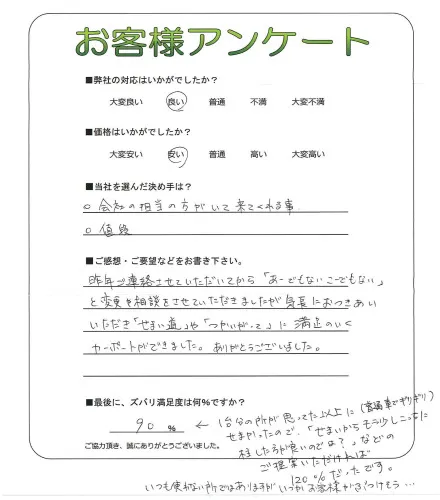 お客様アンケート
■弊社の対応はいかがでしたか?
大変良い 良い 普通 不満 大変不満
■価格はいかがでしたか?
大変安い 安い 普通 高い 大変高い
■当社を選んだ決め手は?
○ 会社の担当の方がいて来てくれる事
○ 値段
■ご感想・ご要望などをお書き下さい。
昨年ご連絡させていただいてから「あーでもないこーでもない」
と変更や相談をさせていただきましたが気長におつきあい
いただき「せまい道」や「つかいがって」に満足のいく
カーポートができました。ありがとうございました。
■最後に、ズバリ満足度は何%ですか?
90 %
← 1台分の所が思ってた以上に(普通車でギリギリ)
せまかったので、「せまいからもう少しこっちに
した方が良いのでは?」などの
ご提案いただければ
120%だったです。
ご協力頂き、誠にありがとうございました。
いつも使わない所ではありますがいつかお客様がぶつけそう…